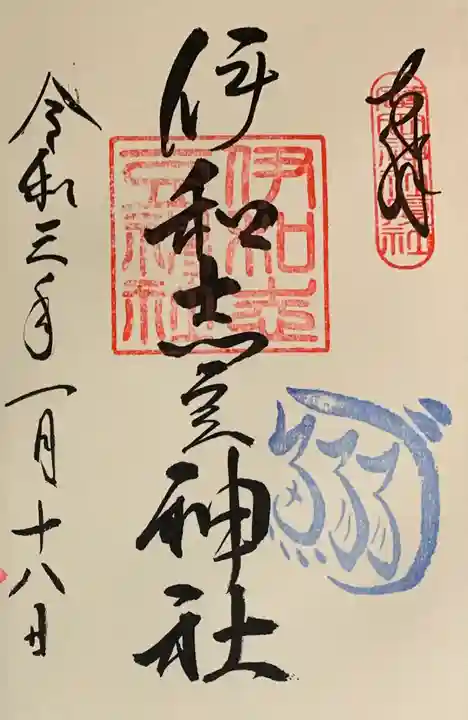 奉拝
伊和志豆神社
伊和志
豆神社
鰯
令和三年一月十八日